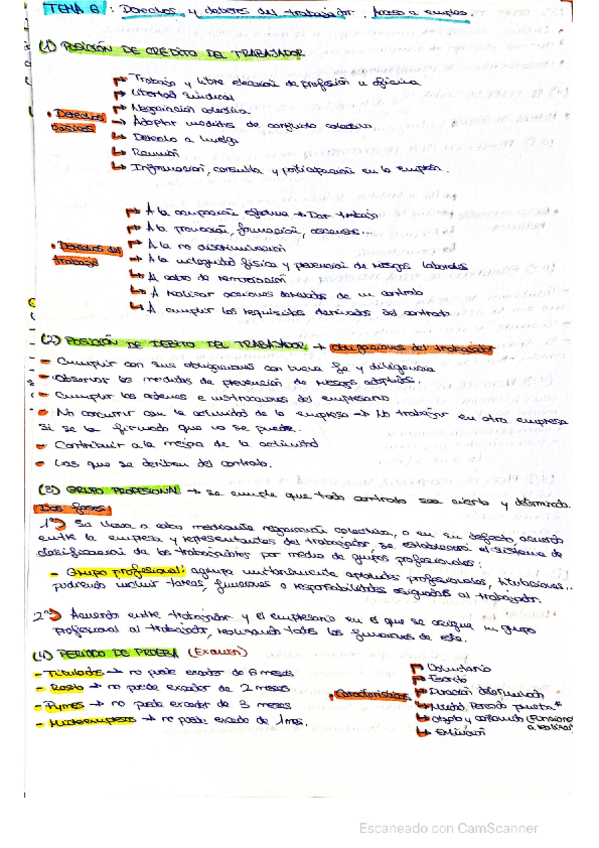 TEMA 6: Derechos y deberes del trabajador. Acceso a empleo.
(1) POSICIÓN DE CRÉDITO DEL TRABAJADOR
• Derechos básicos
Trabajo y libre elección de profesión u oficio.
Libertad sindical
Negociación colectiva.
Adoptar medidas de conflicto colectivo.
Derecho a huelga
Reunión
Información, consulta y participación en la empresa.
• Derechos del trabajo
A la ocupación efectiva → Dar trabajo
A la promoción, formación, ascensos...
A la no discriminación
A la integridad física y prevención de riesgos laborales
A cobro de remuneración
A realizar acciones derivadas de un contrato
A cumplir los requisitos derivados del contrato
(2) POSICIÓN DE DEBITO DEL TRABAJADOR → Obligaciones del trabajador
- Cumplir con sus obligaciones con buena fe y diligencia
- Observar las medidas de prevención de riesgos adoptadas.
- Cumplir las ordenes e instrucciones del empresario
- No concurrir con la actividad de la empresa → No trabajar en otra empresa
si se ha firmado que no se puede.
- Contribuir a la mejora de la actividad
- Las que se deriben del contrato.
(3) GRUPO PROFESIONAL → se cumple que todo contrato sea cierto y determinado.
Dos fases:
1º) Se lleva a cabo mediante negociación colectiva, o en su defecto, acuerdo
entre la empresa y representantes del trabajador se establecerá el sistema de
clasificación de los trabajadores por medio de grupos profesionales:
- Grupo profesional: agrupa unitariamente aptitudes profesionales, titulaciones...
pudiendo incluir tareas, funciones o responsabilidades asignadas al trabajador.
2º) Acuerdo entre trabajador y el empresario en el que se asigna un grupo
profesional al trabajador, realizando todas las funciones de este.
(4) PERIODO DE PRUEBA (Examen)
- Titulados → no puede exceder de 6 meses
- Resto → no puede exceder de 2 meses
- Pymes → no puede exceder de 3 meses
- Microempresas → no puede exceder de 1 mes.
• Características
Voluntario
Escrito
Duración determinada
Nulidad Periodo prueba*
Objeto y contenido (Funciones a realizar)
Extinción
Escaneado con CamScanner